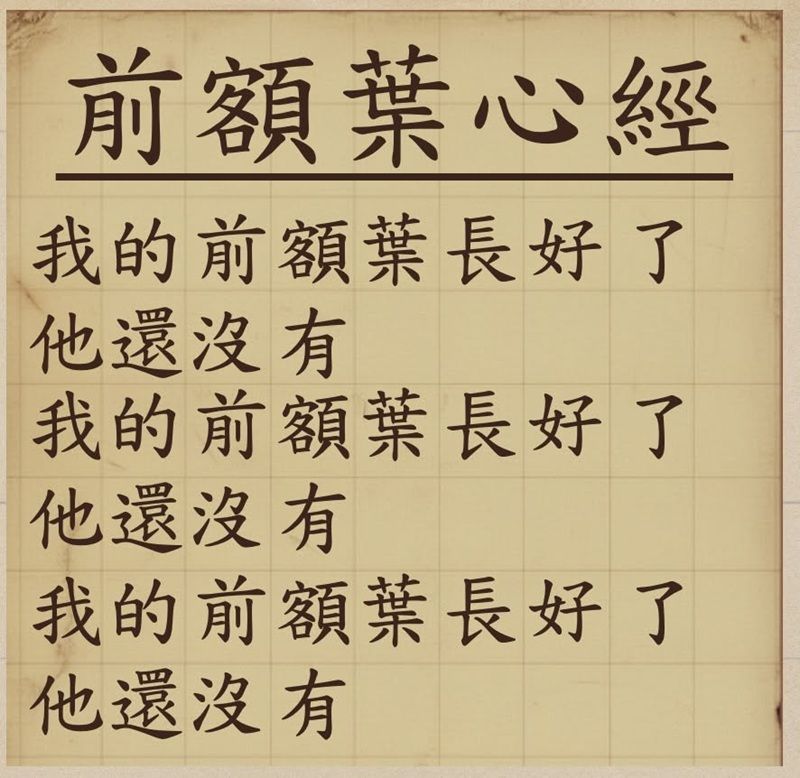 前額葉心經
我的前額葉長好了
他還沒有
我的前額葉長好了
他還沒有
我的前額葉長好了
他還沒有